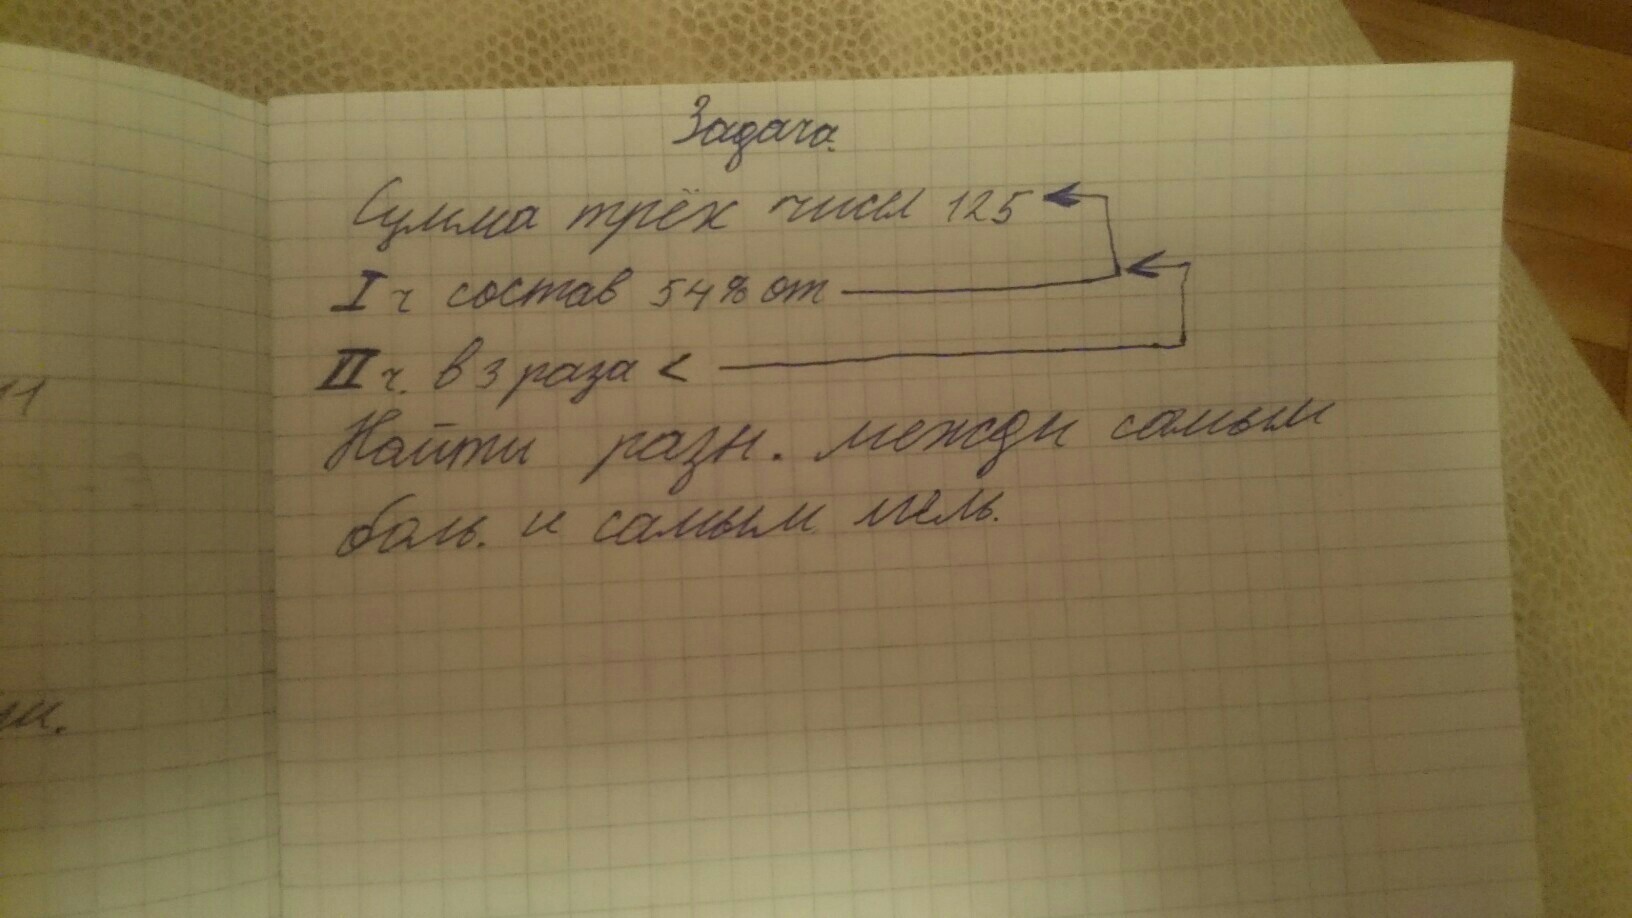 Задача.
Сумма трёх чисел 125
I ч состав 54% от
II ч. в 3 раза <
Найти разн. между самым
боль. и самым мень.
11